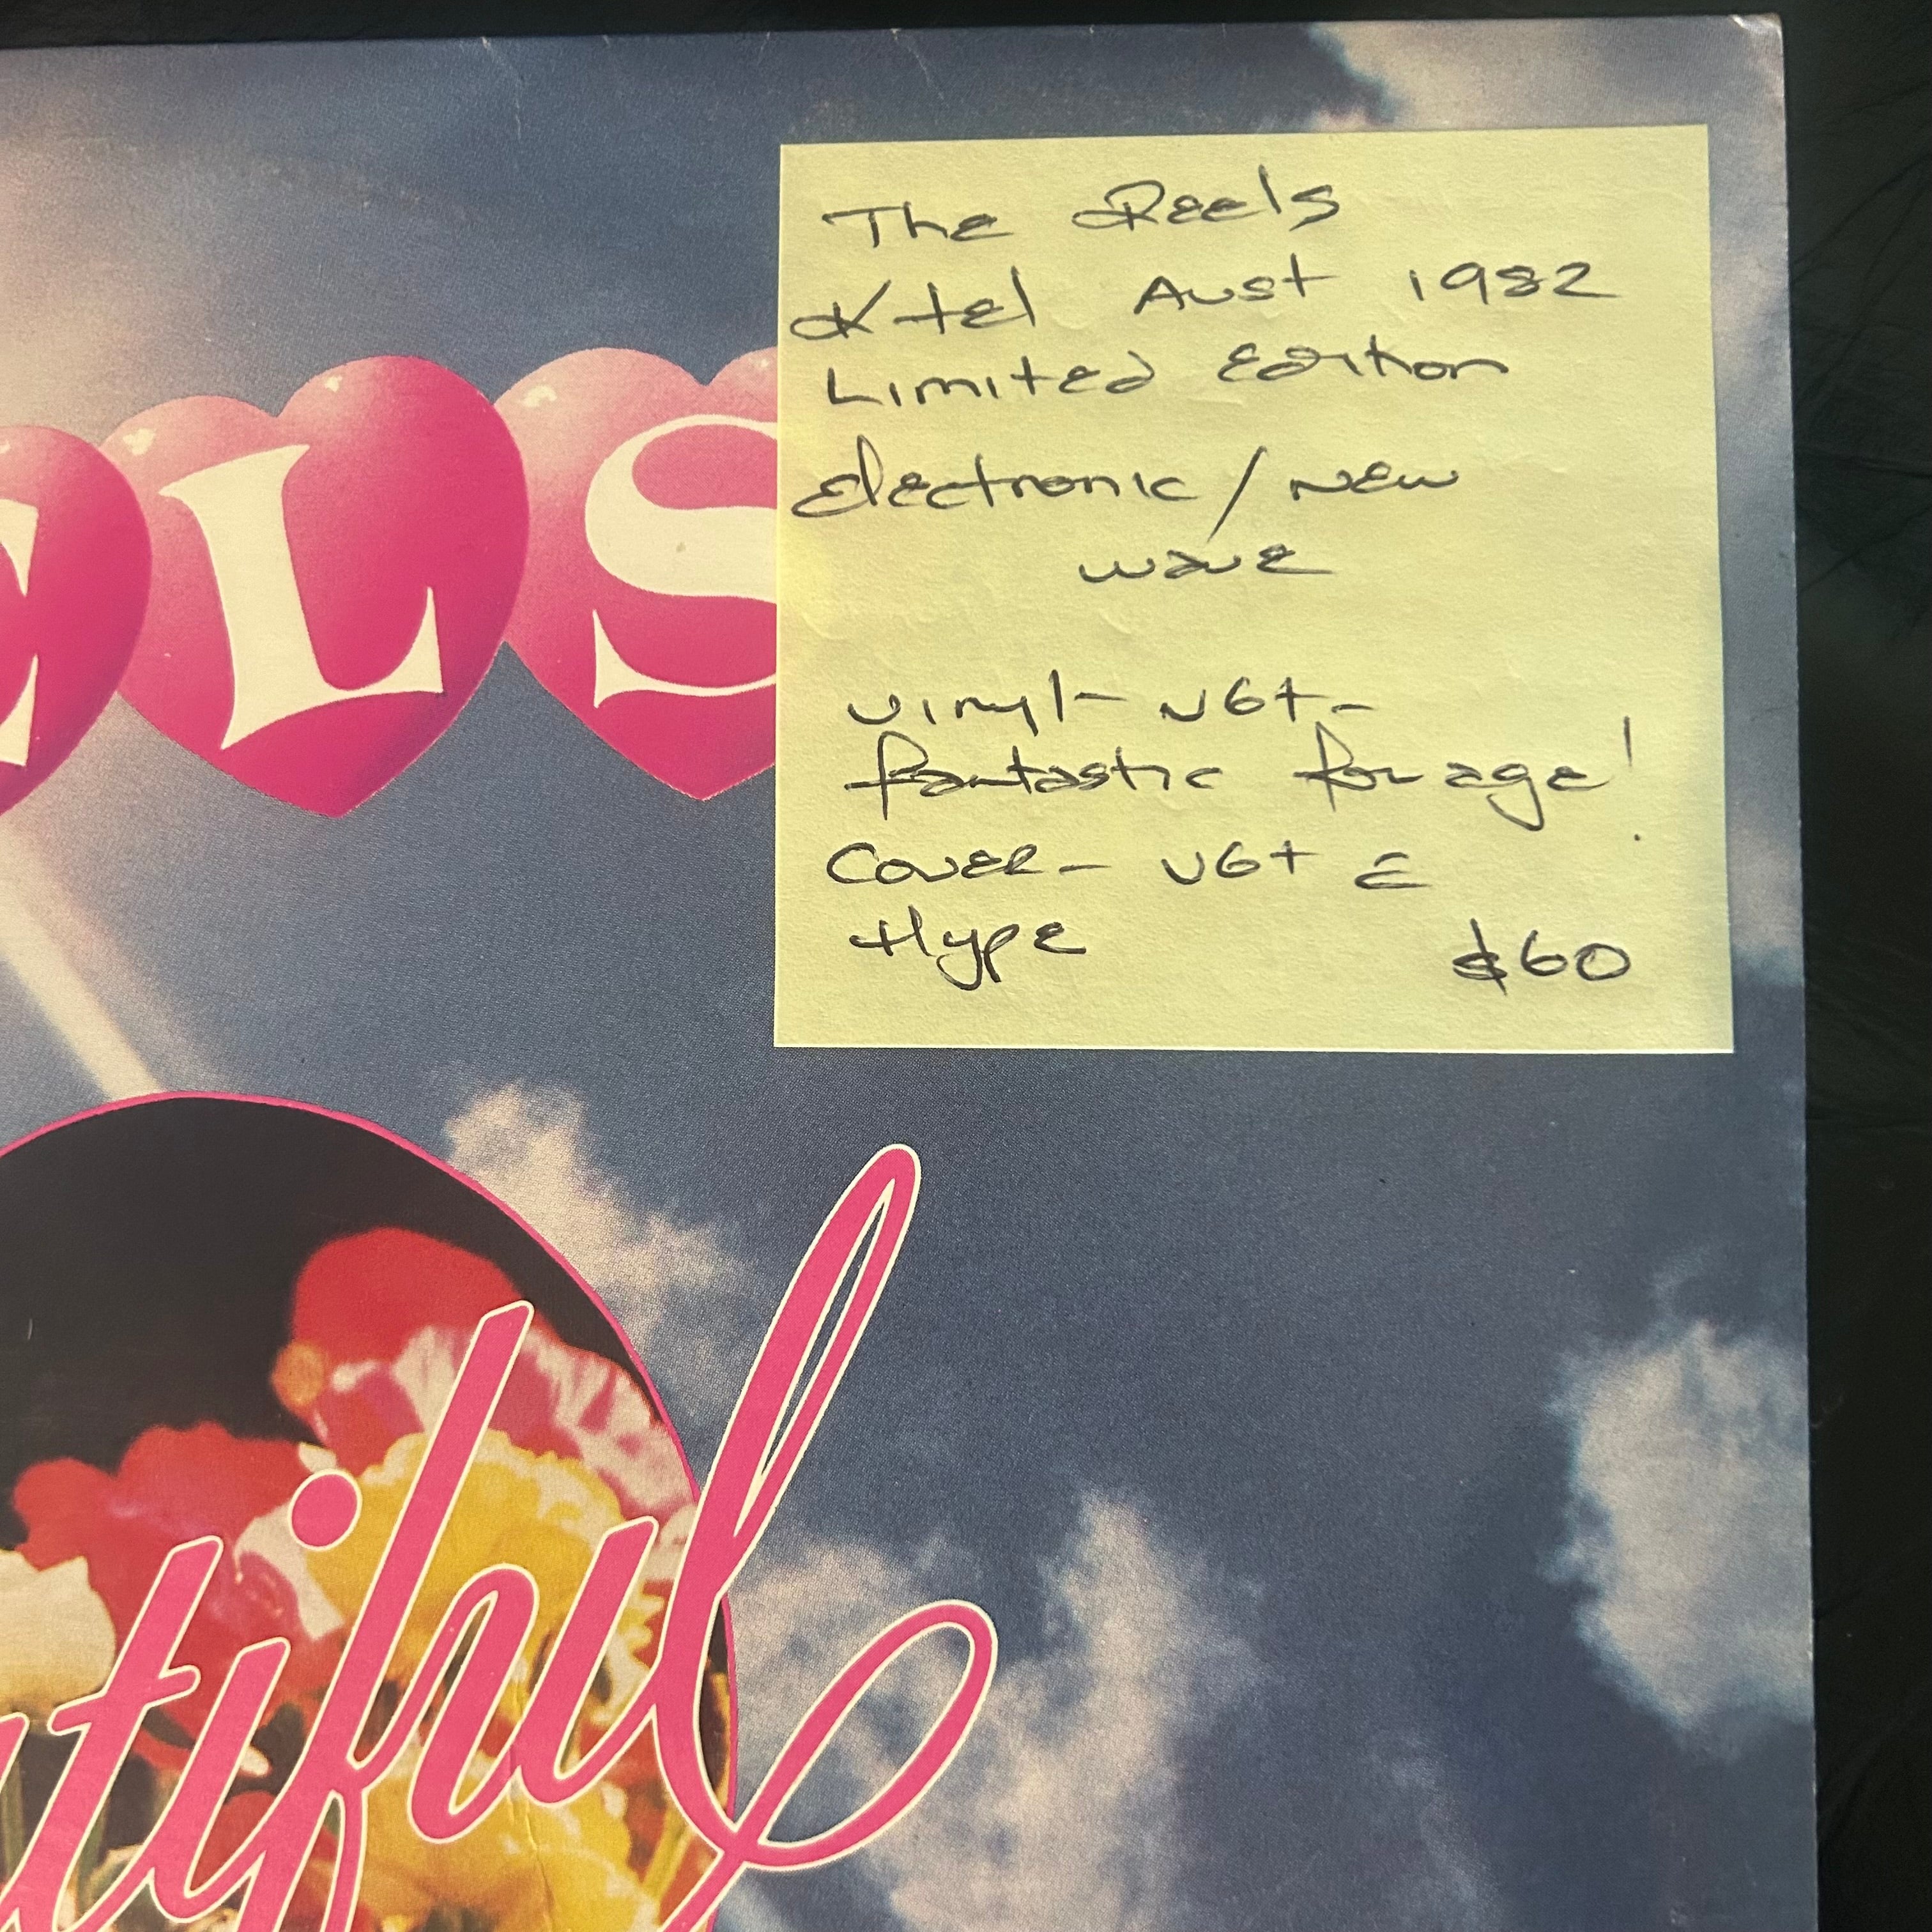 The Reels
Ktel Aust 1982
Limited Edition
Electronic / New
wave
Vinyl - VG+ -
fantastic for age!
Cover - VG+ c
Hype
$60
ELS
utiful